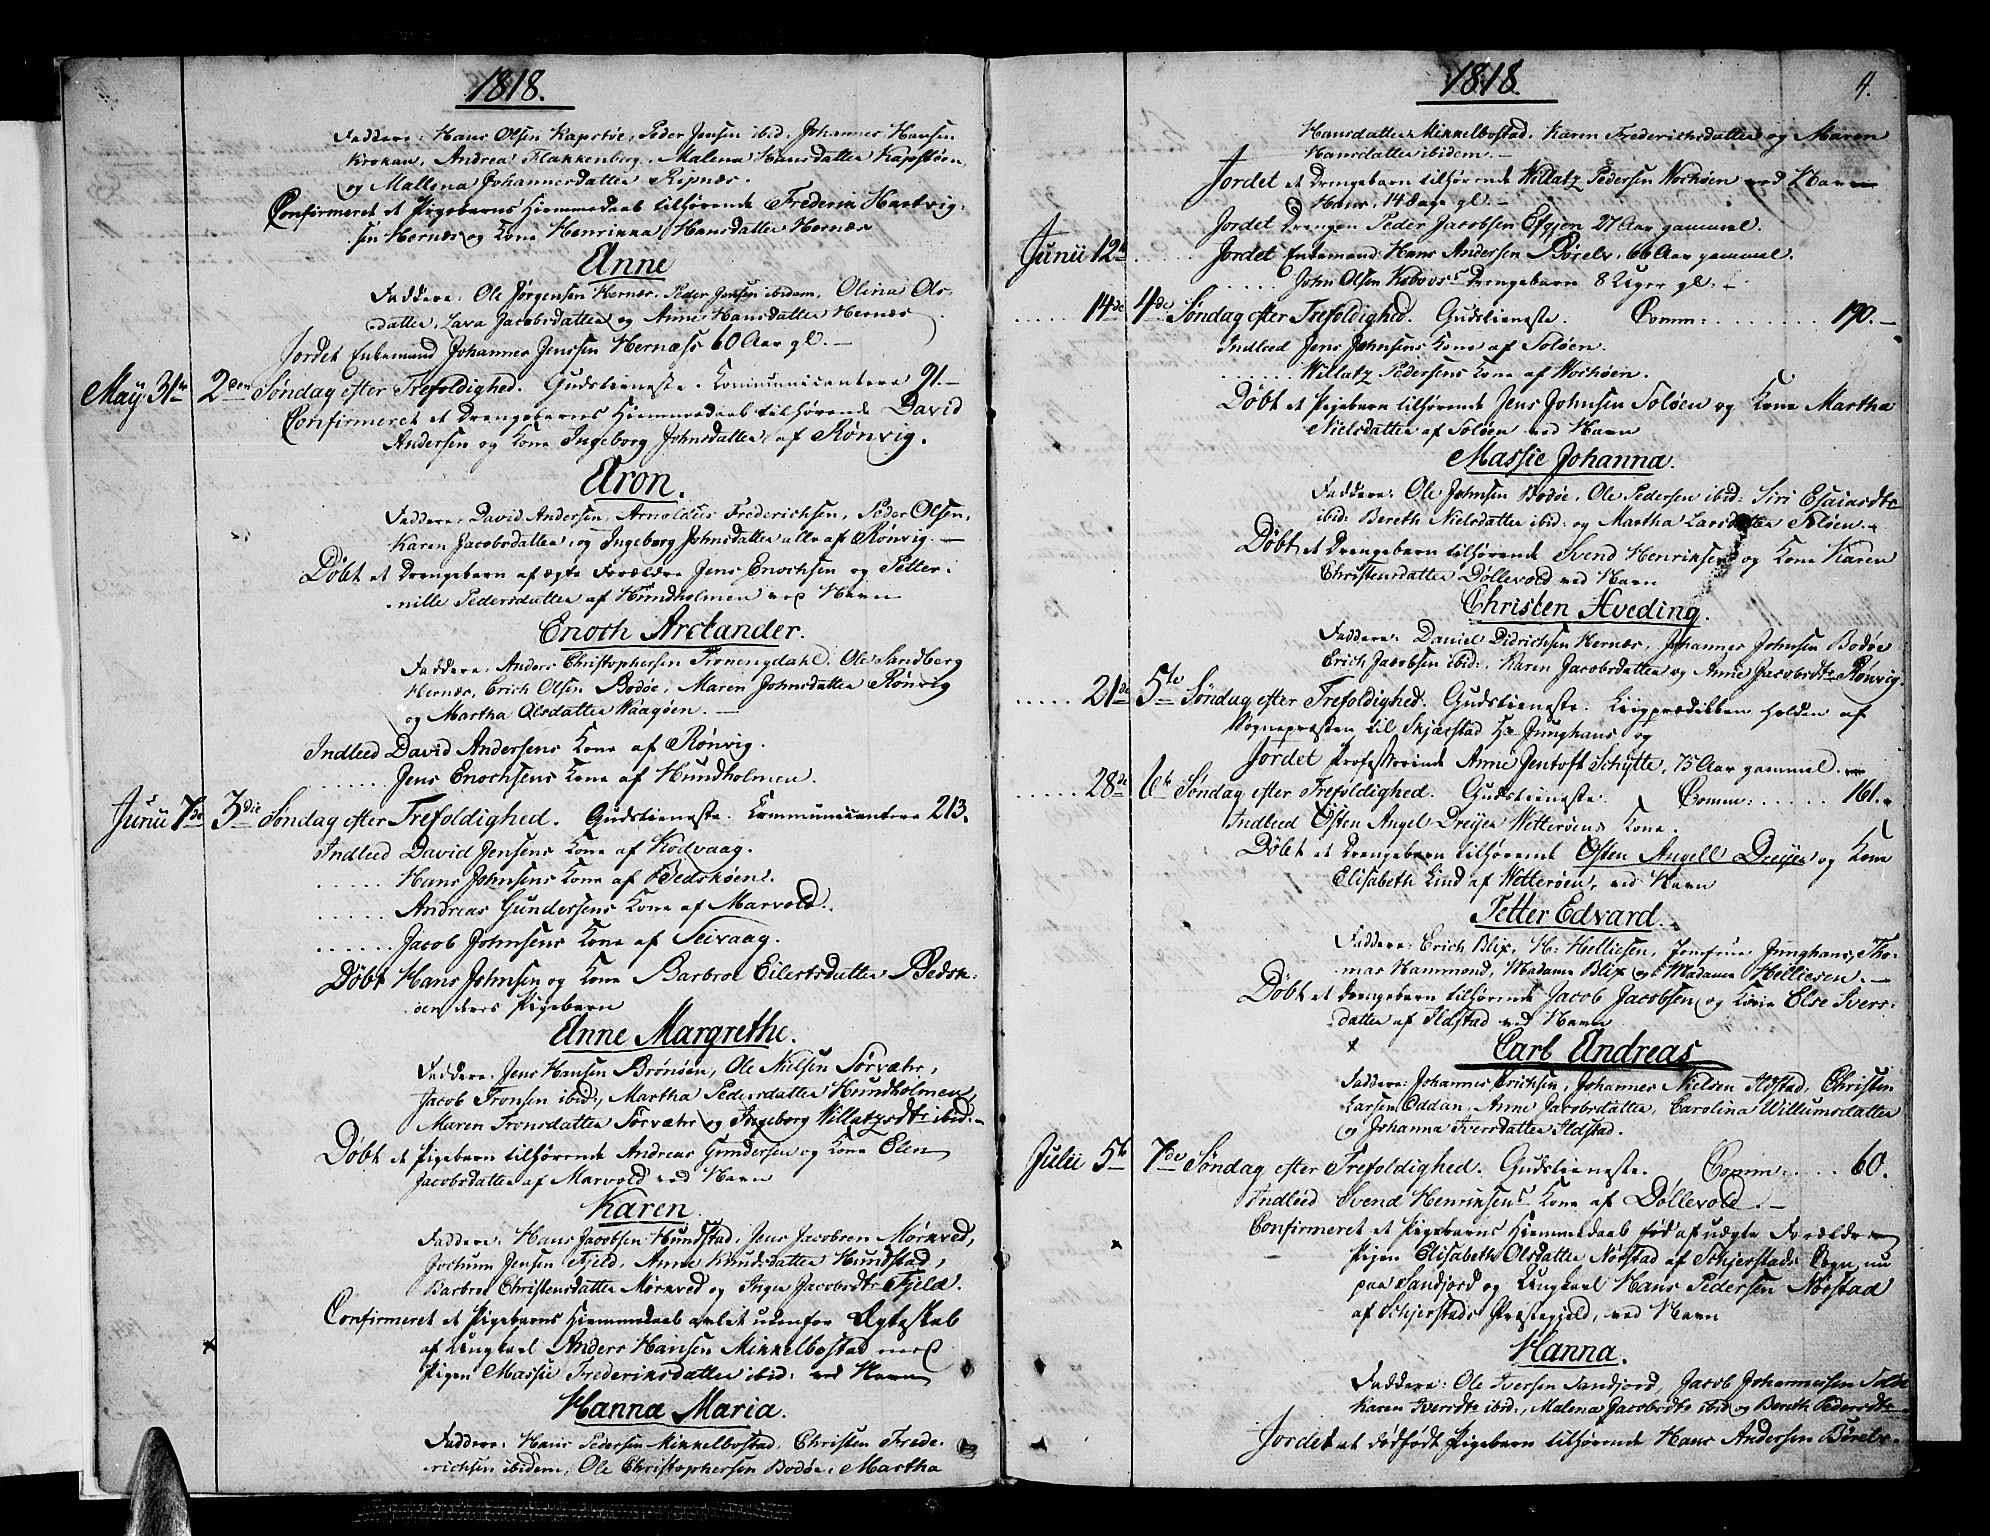 1818.
Faddere: Hans Olsen Kapstöe, Peder Jensen ibid, Johannes Hansen
Krokan, Andrea Flakkenberg, Malena Hansdatter Kapstöen,
og Mallena Johannesdatter Ripnæs.
Confirmeret et Pigebarns Hiemmedaab tilhørende Frederik Hartvig-
sen Hernæs og Kone Henrikka Hansdatter Hernæs
Anne
Faddere: Ole Jørgensen Hernæs, Peder Jensen ibidem, Olina Ols-
datter, Lava Jacobsdatter og Anne Hansdatter Hernæs
Jordet Enkemand Johannes Jenssen Hernæss 60 Aar gl. —
May 31te 2den Søndag efter Trefoldighed. Gudstieneste. Communicantere 91 —
Confirmeret et Drengebarnes Hiemmedaab tilhørende David
Andersen og Kone Ingeborg Johnsdatter af Rønvig.
Aron.
Faddere: David Andersen, Arnoldus Frederichsen, Peder Olsen,
Karen Jacobsdatter, og Ingeborg Johnsdatter alle af Rønvig. —
Döbt et Drengebarn af ægte Forældre Jens Enochsen og Petter-
nille Pedersdatter af Hundholmen ved Navn
Enoch Arctander.
Faddere: Anders Christophersen, Ole Sandberg
Hernæs, Erich Olsen Bodøe, Maren Johnsdatter Rønvig
og Martha Olsdatter Waagöen. —
Indleed David Andersens Kone af Rønvig.
...... Jens Enochsens Kone af Hundholmen.
Junii 7de 3die Søndag efter Trefoldighed. Gudstieneste. Communicantere 213.
Indleed David Jensens Kone af Kodvaag.
...... Hans Johnsens Kone af Bedskøen.
...... Andreas Gundersens Kone af Marvold.
...... Jacob Johnsens Kone af Seivaag.
Döbt Hans Johnsen og Kone Barbroe Eilertsdatter Bedsk-
øen deres Pigebarn
Anne Margrethe.
Faddere: Jens Hansen Brönöen, Ole Nielsen Sörvæhr,
Jacob Tronsen ibid:, Martha Pedersdatter Hundholmen,
Maren Tronsdatter Sörvæhr og Ingeborg Willatzsdtr ibid: —
Döbt et Pigebarn tilhørende Andreas Gundersen og Kone Elen
Jacobsdatter af Marvold ved Navn
Karen
Faddere: Hans Jacobsen Hundstad, Jens Jacobsen Mørkved,
Jochum Jensen Fjeld, Anne Knudsdatter Hundstad,
Barbroe Christensdatter Mørkved og Inger Jacobsdtr Fjeld.
Confirmeret et Pigebarns Hiemmedaab avlet udenfor Ægteskab
af Ungkarl Anders Hansen Mikkelbostad med
Pigen Massie Frederiksdatter ibid: ved Navn
Hanna Maria.
Faddere: Hans Pedersen Mikkelbostad, Christen Frede-
richsen ibidem, Ole Christophersen Bodøe, Martha
1818. 4.
Hansdatter Mikkelbostad, Karen Frederichsdatter og Maren
Hansdatter ibidem. —
Jordet et Drengebarn tilhørende Willatz Pedersen Wochöen ved Navn
Hans, 14 Dage gl. —
Jordet Drengen Peder Jacobsen Efgjon 27 Aar gammel.
Junii 12te ..... Jordet Enkemand Hans Andersen Børelv, 66 Aar gammel.
..... John Olsen Drengebarn 8 Uger gl: —
..... 14de 4de Søndag efter Trefoldighed. Gudstieneste. Comm: ........ 190. —
Indleed Jens Johnsens Kone af Soløen.
...... Willatz Pedersens Kone af Wochöen.
Döbt et Pigebarn tilhørende Jens Johnsen Soløen og Kone Martha
Nielsdatter af Soløen ved Navn
Massie Johanna.
Faddere: Ole Johnsen Bodøe, Ole Pedersen ibid: Siri Esaiasdtr
ibid: Bereth Nielsdatter ibid: og Martha Larsdatter Soløen. —
Döbt et Drengebarn tilhørende Svend Henriksen og Kone Karen
Christensdatter Döllevold ved Navn
Christen Hveding.
Faddere: Daniel Didrichsen Hernæs, Johannes Johnsen Bodøe
Erich Jacobsen ibid:, Karen Jacobsdatter og Anne Jacobsdtr Rønvig.
..... 21de 5te Søndag efter Trefoldighed. Gudstieneste. Liigprædikken holden af
Sognepræsten til Skjærstad Hr Junghans og
Jordet Anne Jentoft Schytte, 75 Aar gammel.
..... 28de 6te Søndag efter Trefoldighed. Gudstieneste. Comm: ...... 161.
Indleed Østen Angel Dreyer Wetterøens Kone.
Döbt et Drengebarn tilhørende Østen Angell Dreyer og Kone
Elisabeth Lind af Wetterøen, ved Navn
Petter Edvard.
Faddere: Erich Blix, H: Helliesen, Jomfrue Junghans, Tho-
mas Hammond, Madame Blix og Madame Helliesen. —
Döbt et Drengebarn tilhørende Jacob Jacobsen og Kone Else Ivers-
datter af Ildstad ved Navn
Carl Andreas
Faddere: Johannes Erichsen, Johannes Nielsen Ildstad, Christen
Larsen Oddan, Anne Jacobsdatter, Carolina Willumsdatter
og Johanna Iversdatter Ildstad.
Julii 5te 7de Søndag efter Trefoldighed. Gudstieneste. Comm: ..... 60.
Indleed Svend Henriksens Kone af Döllevold. —
Confirmeret et Pigebarns Hiemmedaab fød af uægte Forældre
Pigen Elisabeth Olsdatter Nøstad af Schjerstads Sogn, nu
paa Sandjord og Ungkarl Hans Pedersen Nøstad
af Schjerstads Præstegjeld, ved Navn
Hanna.
Faddere: Ole Iversen Sandjord, Jacob Johannessen
Karen Iversdtr ibid:, Malena Jacobsdtr ibid og Bereth Pedersdtr
Jordet et dödfödt Pigebarn tilhørende Hans Andersen Børelv.